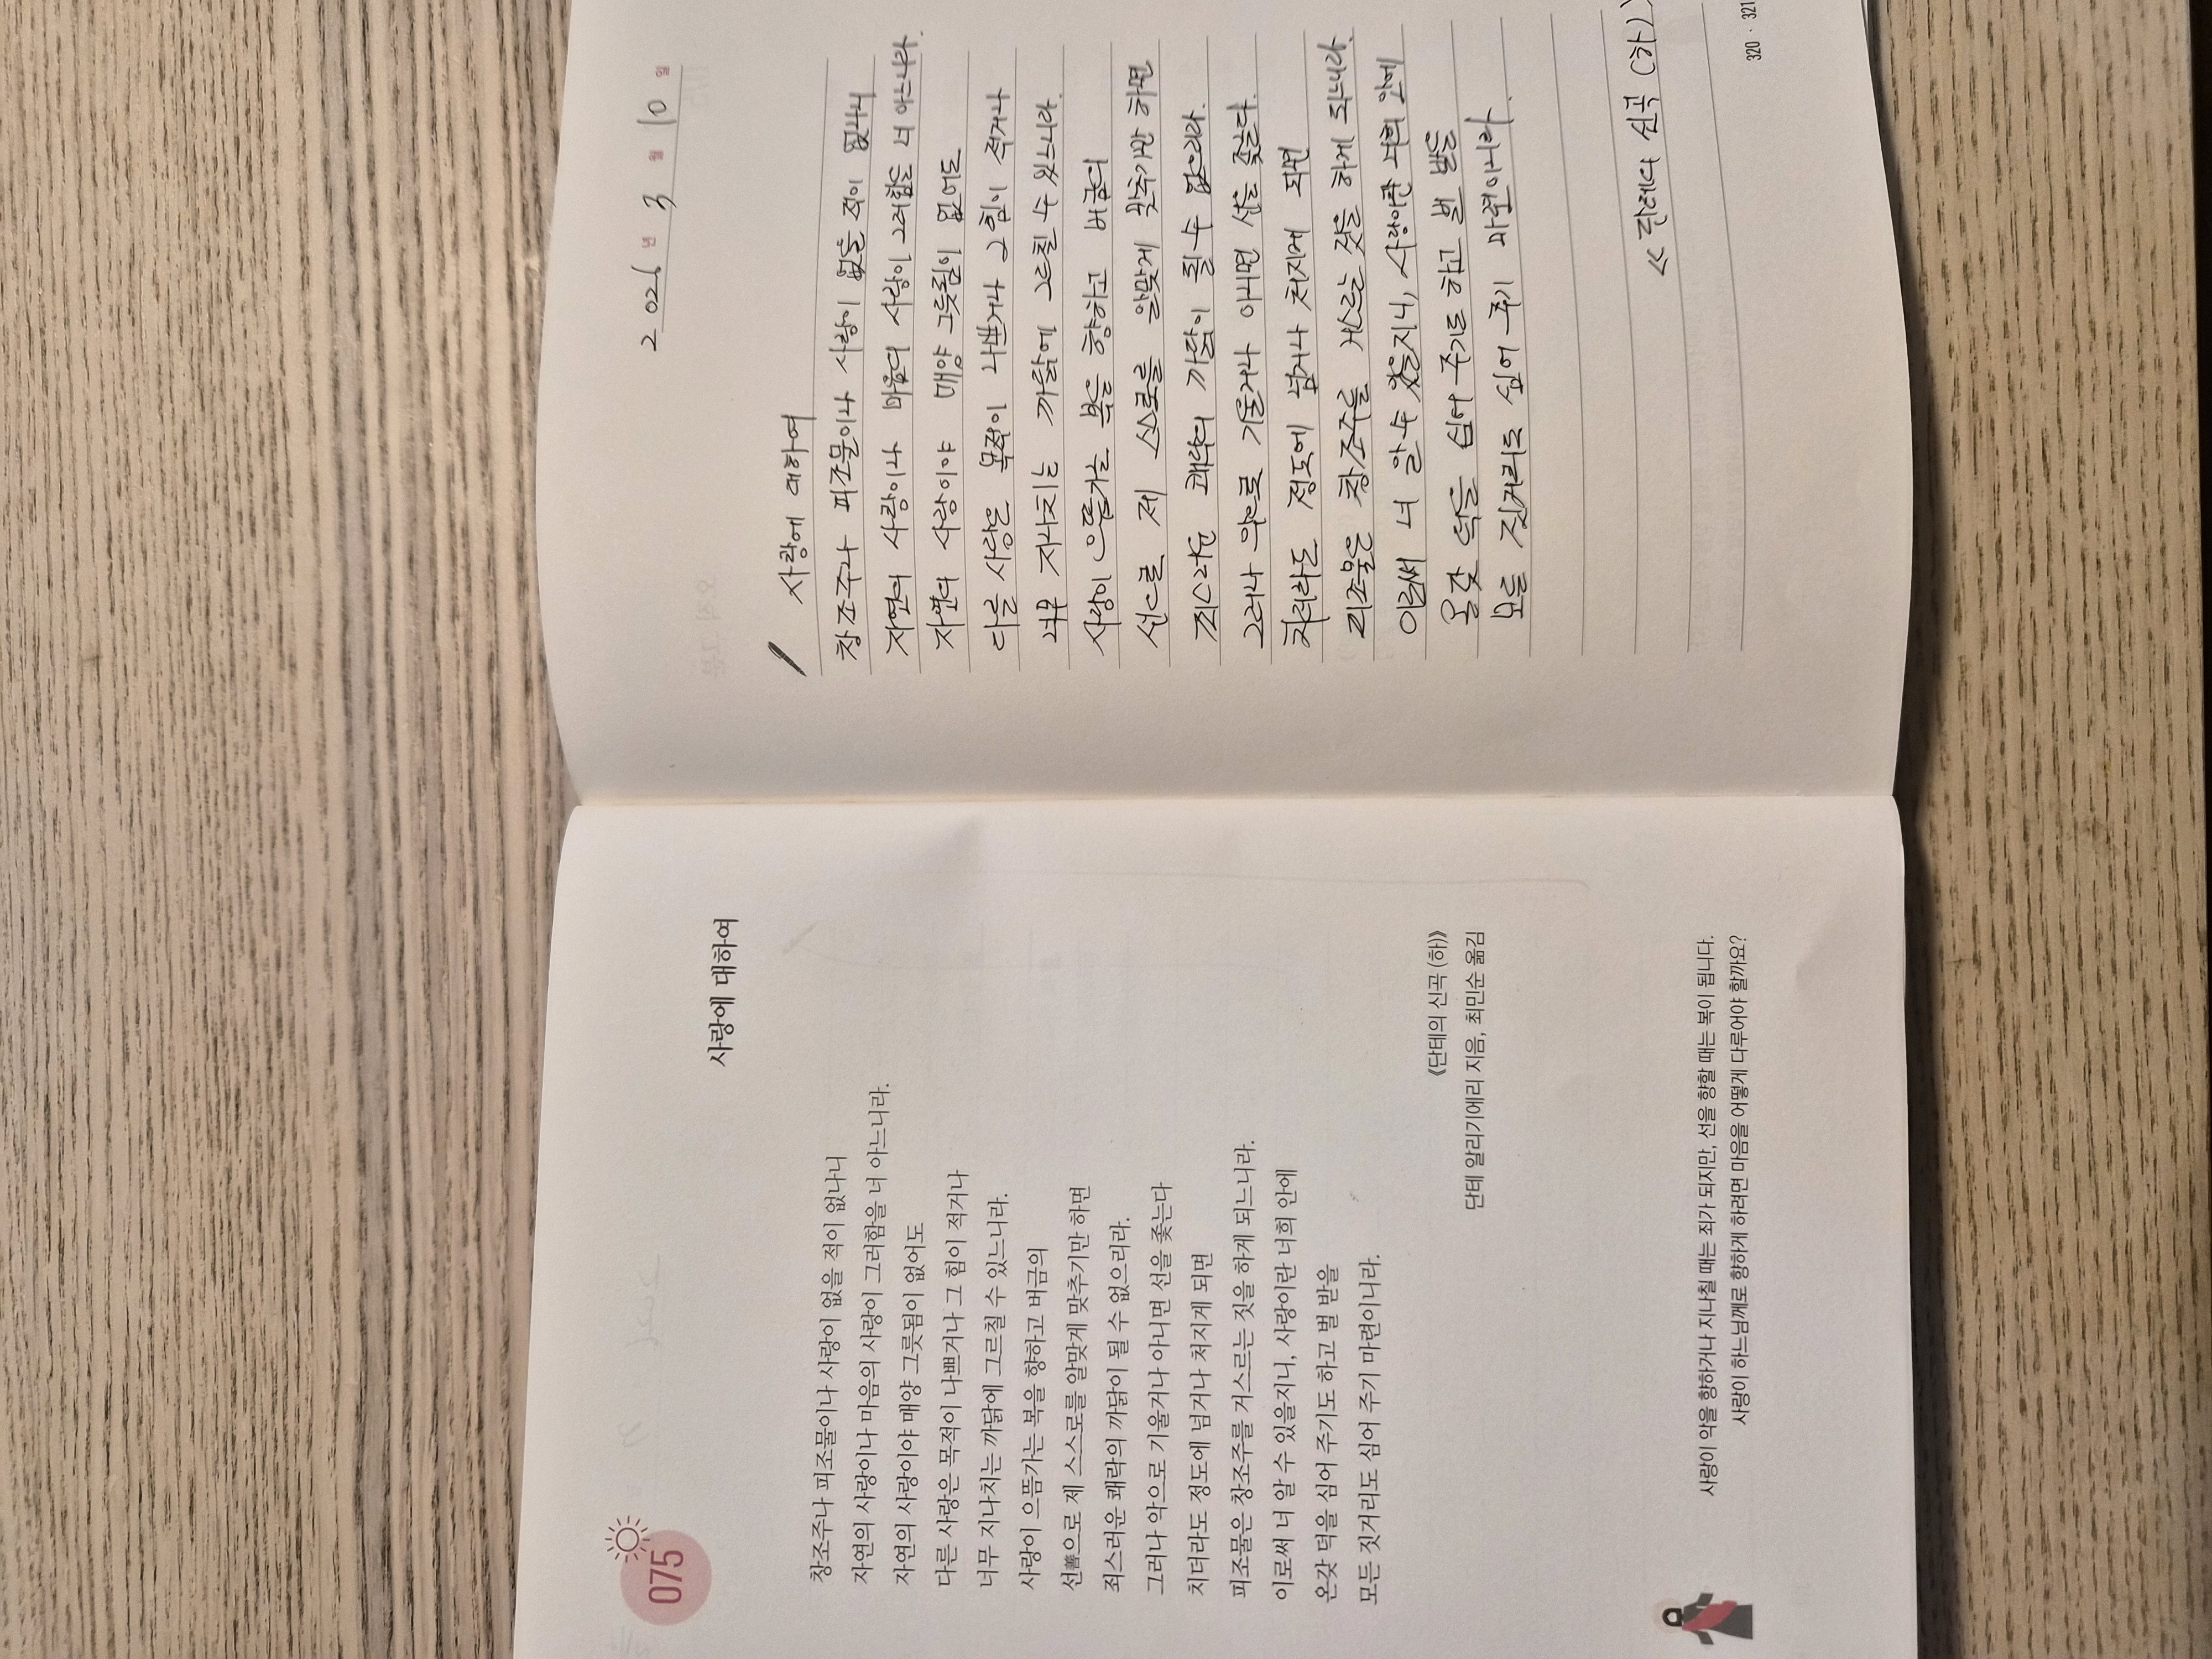 075
사랑에 대하여
창조주나 피조물이나 사랑이 없을 적이 없나니
자연의 사랑이나 마음의 사랑이 그러함을 너 아느니라.
자연의 사랑이야 매양 그릇됨이 없어도
다른 사랑은 목적이 나쁘거나 그 힘이 적거나
너무 지나치는 까닭에 그르칠 수 있느니라.
사랑이 으뜸가는 복을 향하고 버금의
선善으로 제 스스로를 알맞게 맞추기만 하면
죄스러운 쾌락의 까닭이 될 수 없으리라.
그러나 악으로 기울거나 아니면 선을 좇는다
치더라도 정도에 넘거나 처지게 되면
피조물은 창조주를 거스르는 짓을 하게 되느니라.
이로써 너 알 수 있을지니, 사랑이란 너희 안에
온갖 덕을 심어 주기도 하고 벌 받을
모든 짓거리도 심어 주기 마련이니라.
《단테의 신곡 (하)》
단테 알리기에리 지음, 최민순 옮김
사랑이 악을 향하거나 지나칠 때는 죄가 되지만, 선을 향할 때는 복이 됩니다.
사랑이 하느님께로 향하게 하려면 마음을 어떻게 다루어야 할까요?
2026 년 3 월 10 일
사랑에 대하여
창조주나 피조물이나 사랑이 없을 적이 없나니
자연의 사랑이나 마음의 사랑이 그러함을 너 아느니라.
자연의 사랑이야 매양 그릇됨이 없어도
다를 사랑은 목적이 나쁘거나 그 힘이 적거나
너무 지나치는 까닭에 그르칠 수 있느니라.
사랑이 으뜸가는 복을 향하고 버금의
선으로 제 스스로를 알맞게 맞추기만 하면
죄스러운 쾌락의 까닭이 될 수 없으리라.
그러나 악으로 기울거나 아니면 선을 좇는다.
치더라도 정도에 넘거나 처지게 되면
피조물은 창조주를 거스르는 짓을 하게 되느니라.
이로써 너 알 수 있을지니, 사랑이란 너희 안에
온갖 덕을 심어 주기도 하고 벌 받을
모든 짓거리도 심어 주기 마련이니라.
《단테의 신곡 (하)》
320 · 321